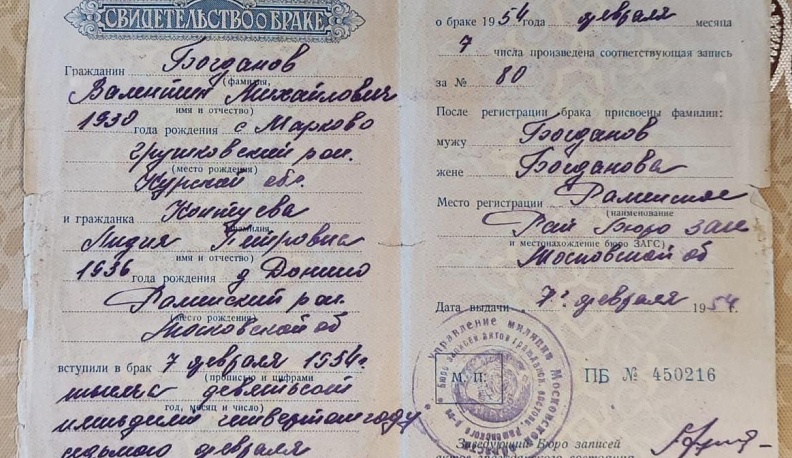 СВИДЕТЕЛЬСТВО О БРАКЕ
Гражданин Богданов
(фамилия,
Валентин Михайлович
имя и отчество)
1930 года рождения с Марково
рай.
(место рождения)
Курской обл.
и гражданка
фамилия
Лидия Петровна
имя и отчество)
1936 года рождения д Донино
Раменский рай.
(место рождения)
Московской об
вступили в брак 7 февраля 1954г.
(прописью и цифрами
тысяча девятьсот
год, месяц и число)
пятьдесят четвертом году
седьмого февраля
о браке 1954 года февраля месяца
7 числа произведена соответствующая запись
за № 80
После регистрации брака присвоены фамилии:
мужу Богданов
жене Богданова
Место регистрации Раменское
(наименование
Рай бюро загс
и местонахождение бюро ЗАГС)
Московской об
Дата выдачи „ 7 " февраля 1954 г.
Управление милиции Московской
М. П.
ПБ № 450216
Заведующий Бюро записей
актов гражданского состояния